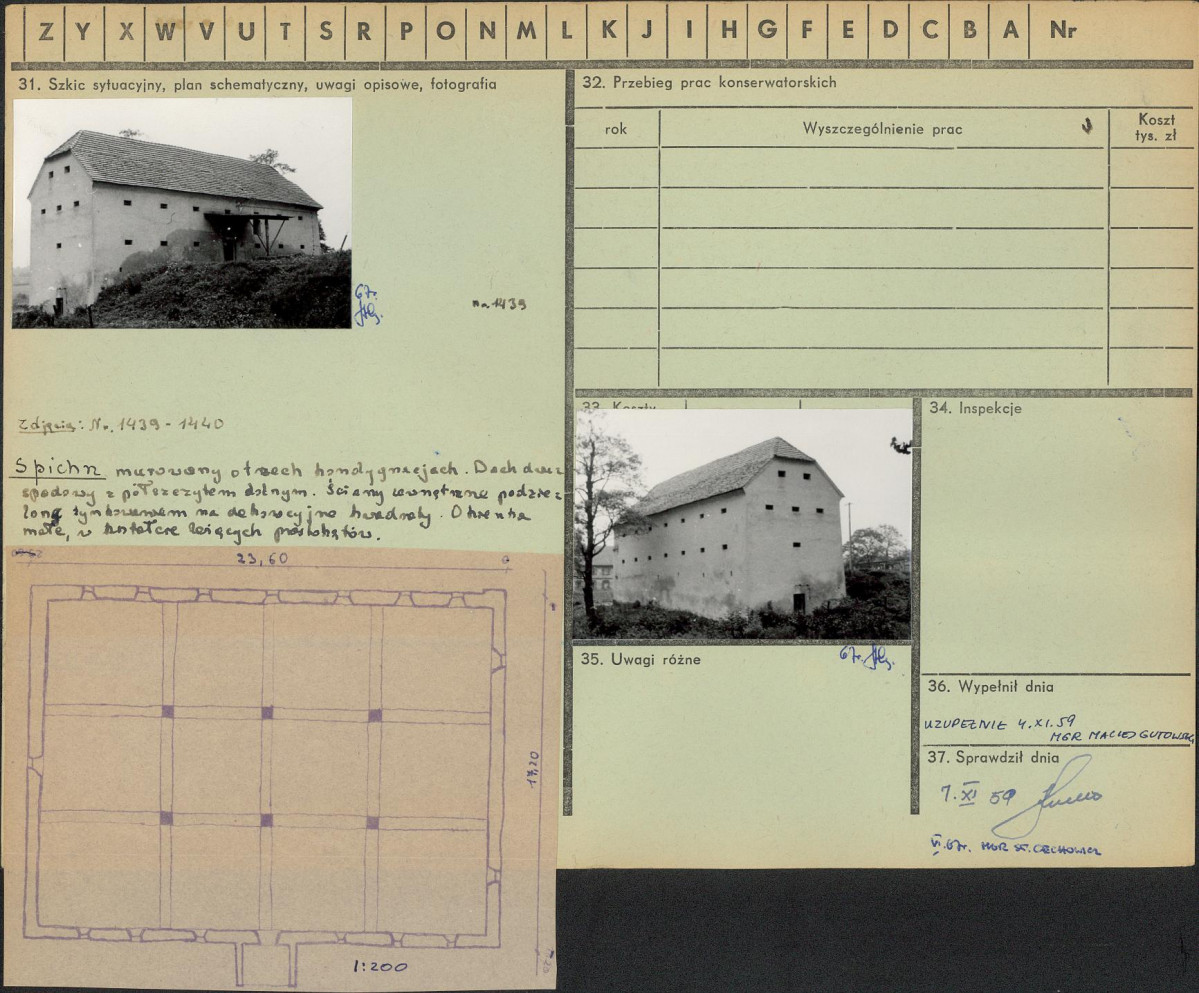 Z Y X W V U T S R P O N M L K J I H G F E D C B A Nr
31. Szkic sytuacyjny, plan schematyczny, uwagi opisowe, fotografia
67r.
na 1439
Zdjęcia: Nr. 1439 - 1440
Spichrz murowany o trzech kondygnacjach. Dach dwu
spadowy z półszczytem dolnym. Ściany zewnętrzne podzie
lone tynkowaniem na dekoracyjne kwadraty. Okienka
małe, w kształcie leżących prostokątów.
23,60
17,20
1:200
32. Przebieg prac konserwatorskich
rok Wyszczególnienie prac Koszt tys. zł
33. Koszty
34. Inspekcje
35. Uwagi różne
67r.
36. Wypełnił dnia
UZUPEŁNIŁ 4.XI.59
MGR MACIEJ GUTOWSKI
37. Sprawdził dnia
7.XI 59
VI.67r. MGR ST. CECHOWICZ